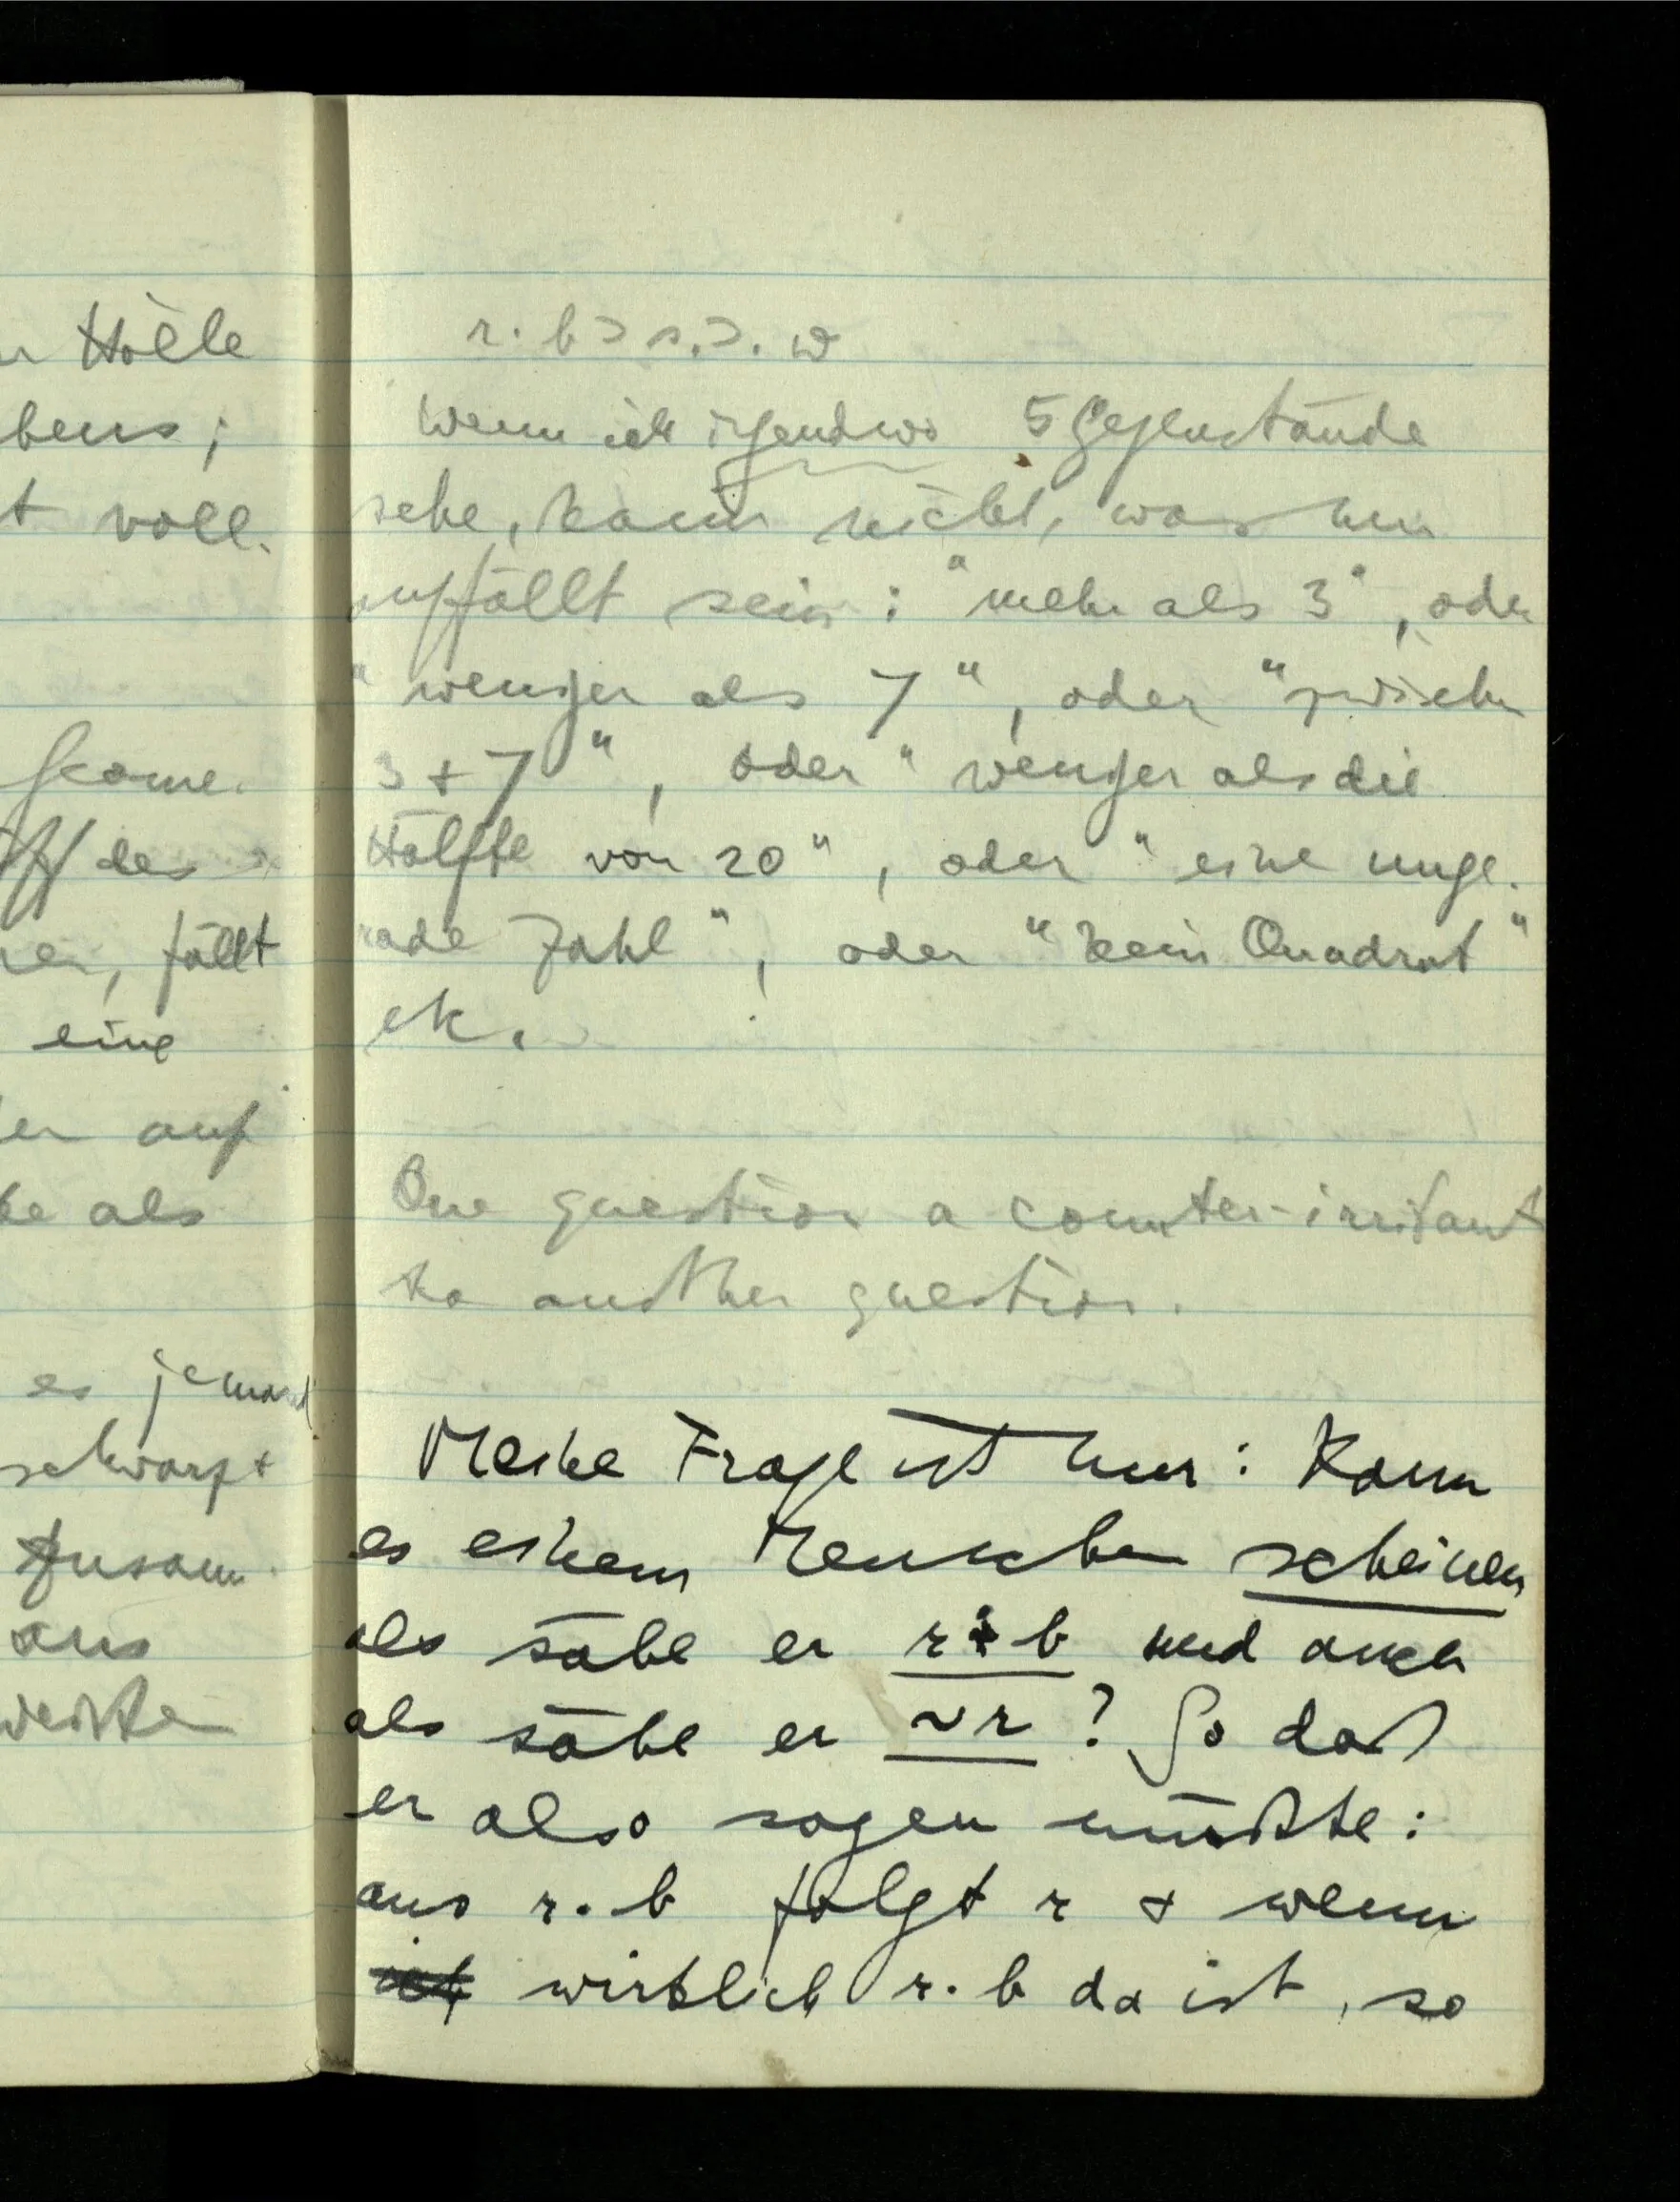 r Hölle
bens;
t voll.
Geome-
iff des
er, fällt
eine
er auf
be als
es jemand
schwarz +
zusam-
aus
weißte
r . b ⊃ s . ⊃ . w
Wenn ich irgendwo 5 Gegenstände
sehe, kann nicht, was mir
auffällt sein: "mehr als 3", oder
"weniger als 7", oder "zwischen
3 + 7", oder "weniger als die
Hälfte von 20", oder "eine unge-
rade Zahl", oder "kein Quadrat"
etc.
One question a counter-irritant
to another question.
Meine Frage ist nur: Kann
es einem Menschen scheinen
als sähe er r . b und auch
als sähe er ~ r? So daß
er also sagen müßte:
aus r . b folgt r + wenn
wirklich r . b da ist, so